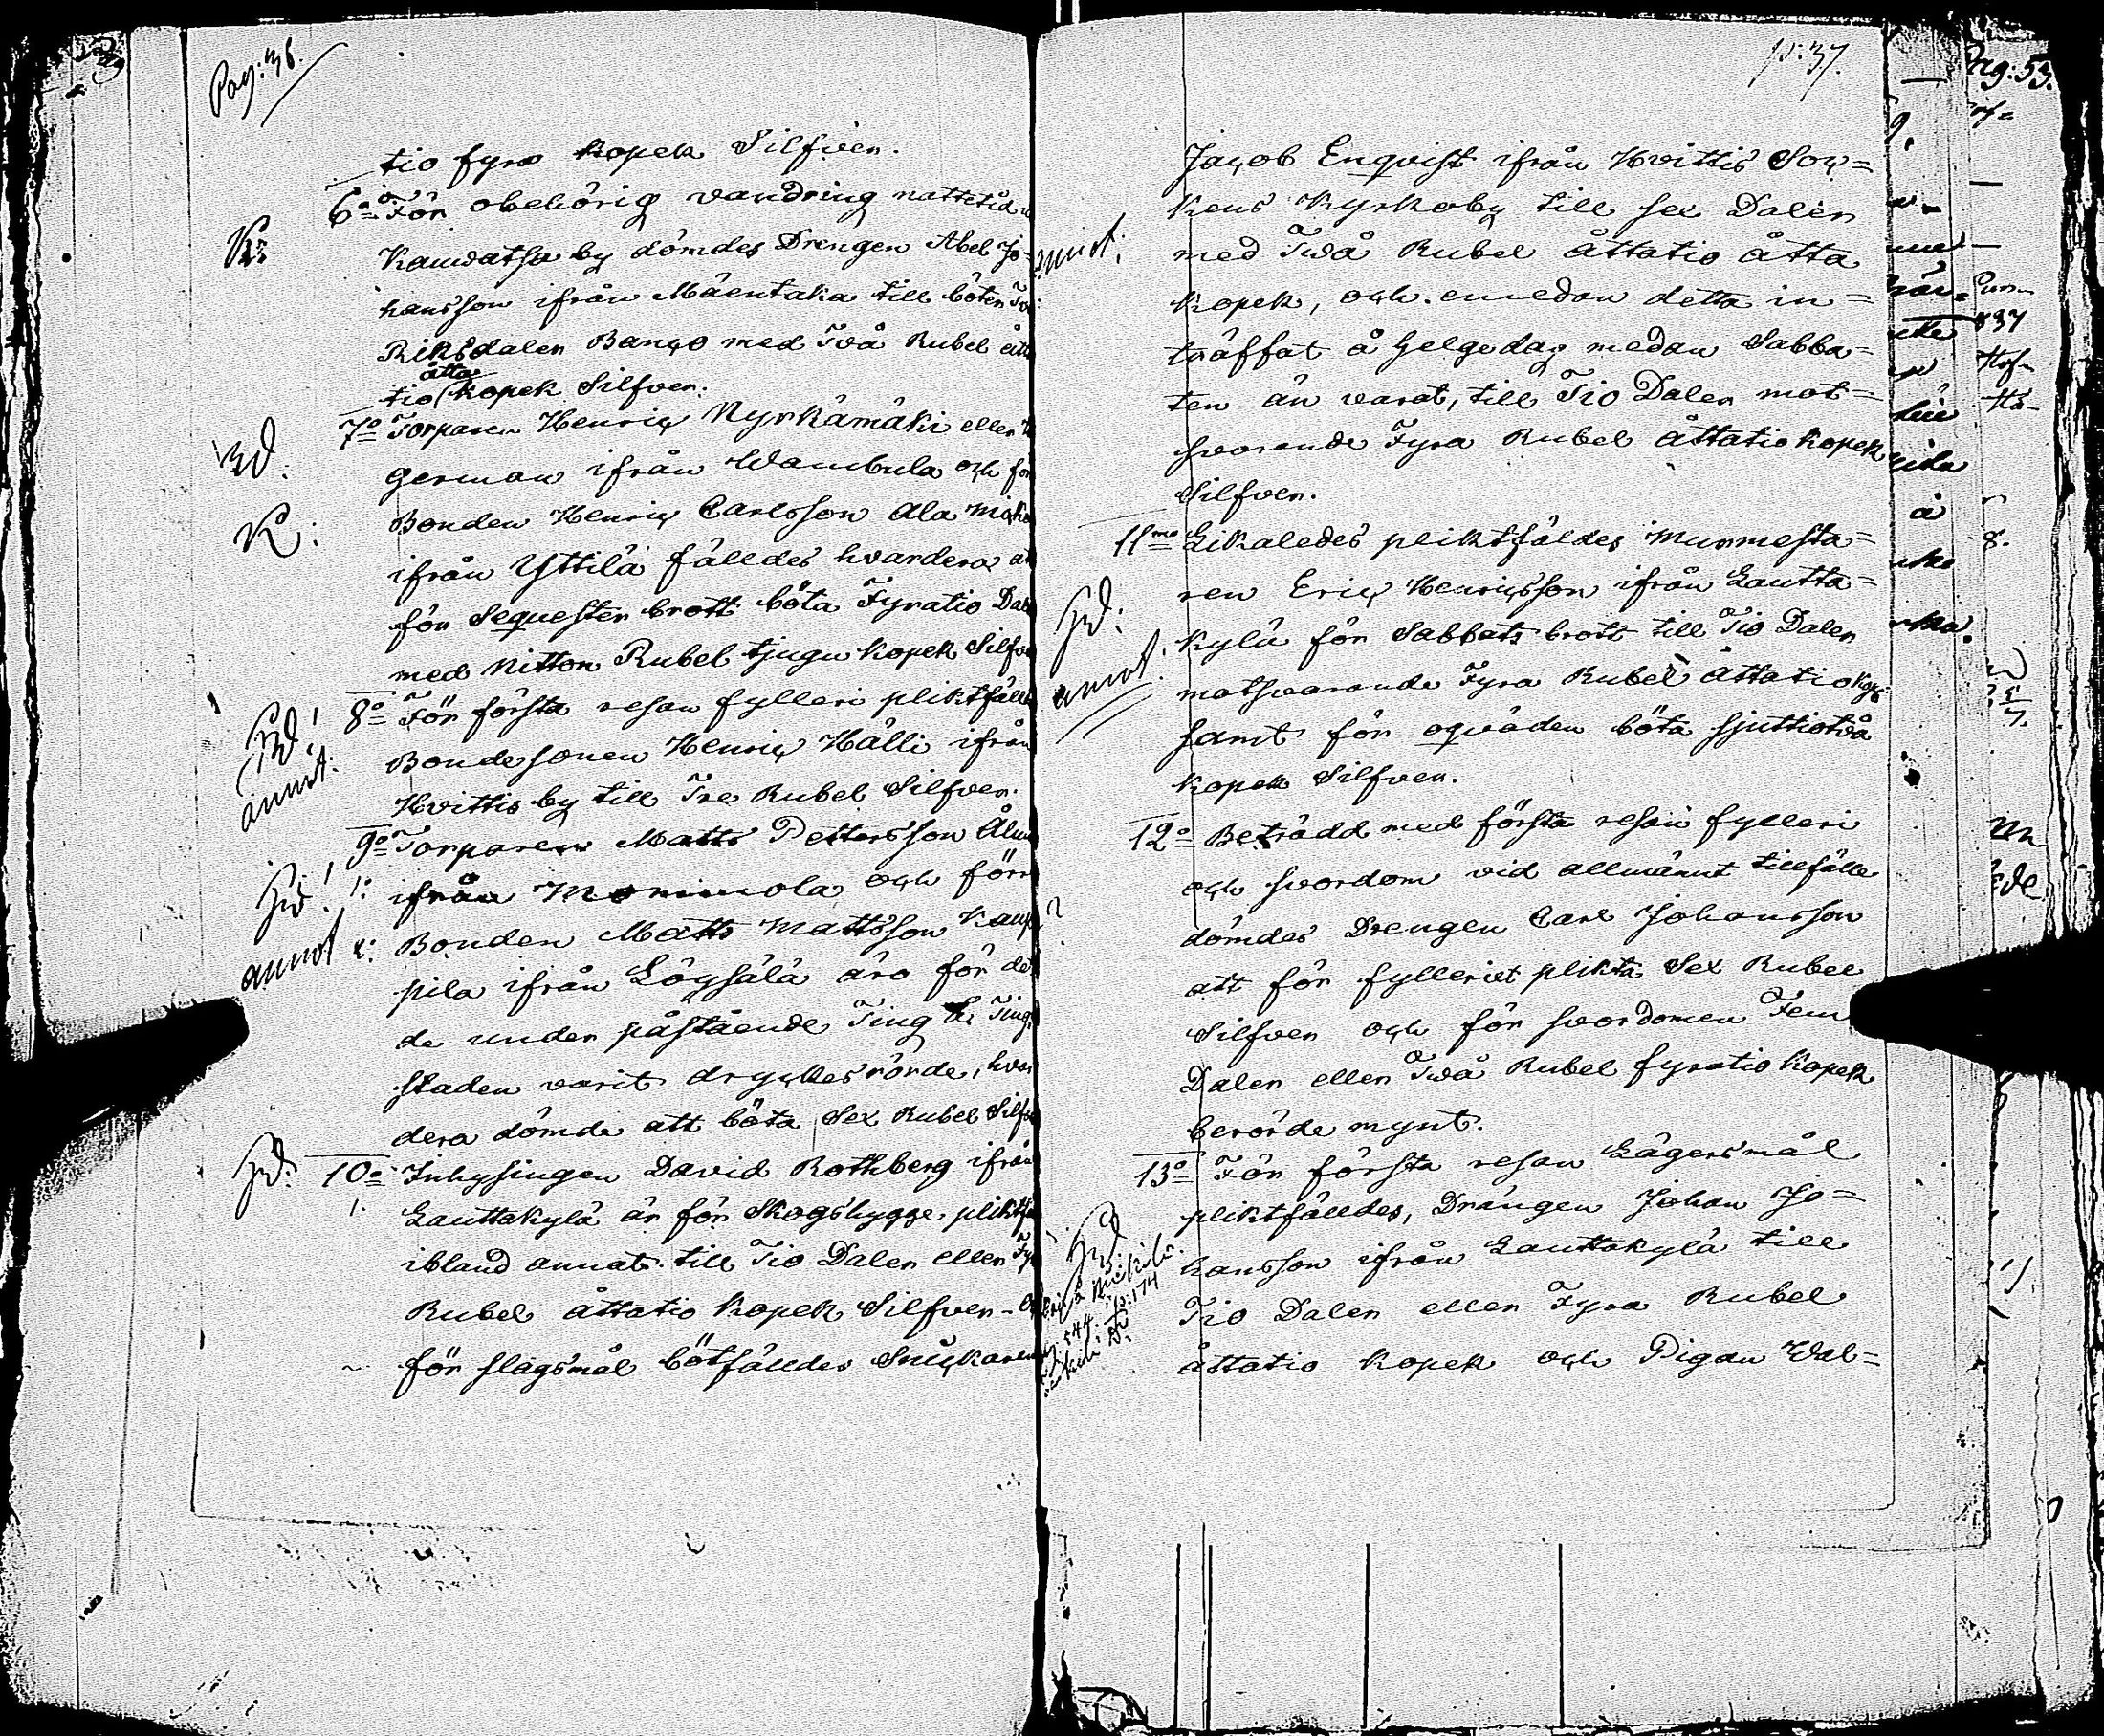 Pag: 36.
tio fyra kopek Silfver.
6o För obehörig vandring nattetid
Kauvatsa by dömdes Drengen Abel Jo-
hansson ifrån Mäentaka till böter
Riksdaler Banco med Två Rubel
åtta
tio kopek Silfver.
7o Torparen Henric Nyrkämäki eller
german ifrån Wambula och för
Bonden Henric Carlsson Ala
ifrån Yttilä fälledes hvardera
för Sequester brott böta Fyratio
med Nitton Rubel tjugu kopek
8o För första resan fylleri
Bondesonen Henric Hälli ifrån
annot:
Hvittis by till Tre Rubel Silfver.
9o Torparen Matts Pettersson
ifrån Mommola och
annot
Bonden Matts Mattsson
pila ifrån Löysälä äro för
de under påstående Ting
staden varit dryckes rörde,
dera dömde att böta Sex Rubel
10o Inhysingen David Rothberg ifrån
Lauttakylä är för Skogshygge
ibland annat till Tio Daler eller
Rubel åttatio kopek Silfver
för slagsmål bötfälldes Snickaren
p: 37.
Jacob Enqvist ifrån Hvittis Soc=
kens Kyrkoby till sex Daler
annot:
med Twå Rubel åttatio åtta
kopek, och emedan detta in=
träffat å helgedag medan Sabba=
ten än varat, till Tio Daler mot=
svarande Fyra Rubel åttatio kopek
Silfver.
11mo Likaledes pliktfäldes Murmesta=
ren Eric Henricsson ifrån Lautta=
kylä för Sabbatsbrott till Tio Daler
annot:
motsvarande Fyra Rubel åttatio kop:
samt för oqväden böta sjuttiotvå
kopek Silfver.
12o Beträdd med första resan fylleri
och svordom vid allmännt tillfälle
dömdes Drengen Carl Johansson
att för fylleriet plikta Sex Rubel
Silfver och för svordomen Fem
Daler eller Twå Rubel fyratio kopek
berörde mynt.
13o För första resan Lägersmål
pliktfälldes, Drängen Johan Jo=
hansson ifrån Lauttakylä till
Tio Daler eller Fyra Rubel
åttatio kopek och Pigan Wal=
Pag: 53.